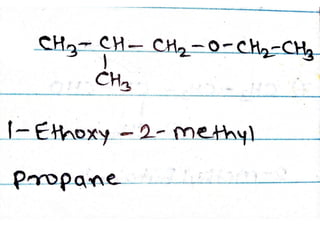 CH3- CH- CH2-O-CH2-CH3
|
CH3
1-Ethoxy-2-methyl
propane